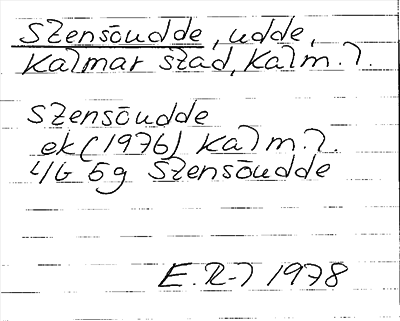 Stensöudde, udde,
Kalmar stad, Kalm.l.
Stensöudde
ek (1976) Kalm.l.
4G 5g Stensöudde
E.R-l 1978